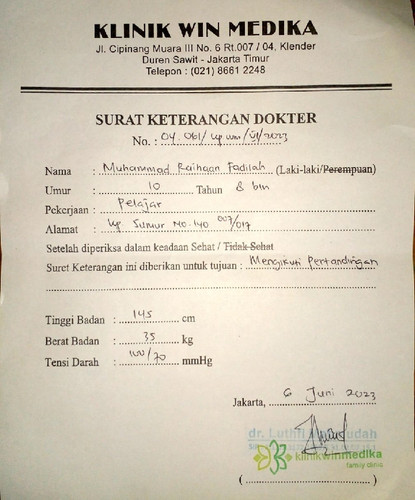 KLINIK WIN MEDIKA
Jl. Cipinang Muara III No. 6 Rt.007 / 04, Klender
Duren Sawit - Jakarta Timur
Telepon : (021) 8661 2248
SURAT KETERANGAN DOKTER
No. : 04.061/kp wm/VI/2023
Nama : Muhammad Raihaan Fadilah (Laki-laki/Perempuan)
Umur : 10 Tahun 8 bln
Pekerjaan : Pelajar
Alamat : kp Sumur No.40 007/017
Setelah diperiksa dalam keadaan Sehat / Tidak Sehat
Suret Keterangan ini diberikan untuk tujuan : Mengikuti Pertandingan
Tinggi Badan : 145 cm
Berat Badan : 35 kg
Tensi Darah : 100/70 mmHg
Jakarta, 6 Juni 2023
dr. Luthfi
klinikwinmedika
family clinic